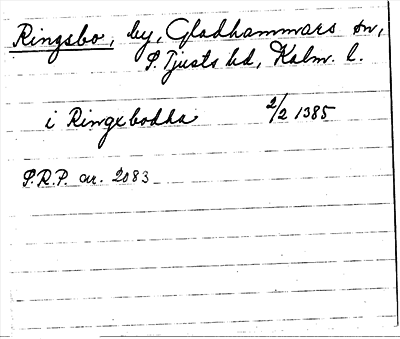 Ringsbo, by, Gladhammars sn,
S. Tjusts hd, Kalm. l.
i Ringxbodha 2/2 1385
S.R.P. nr. 2083